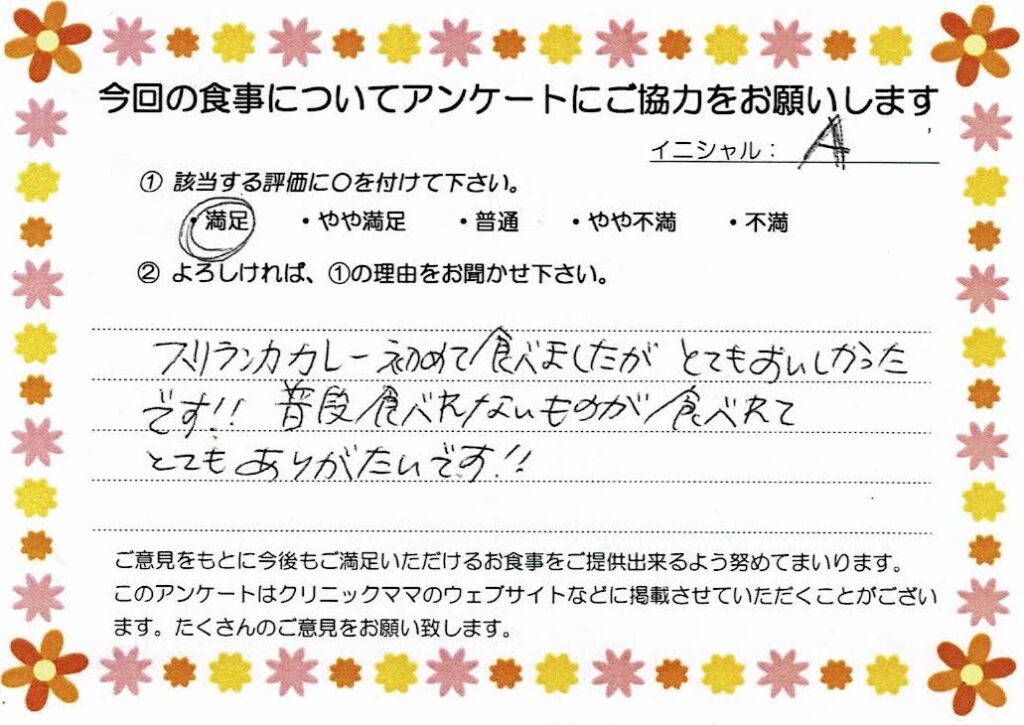 今回の食事についてアンケートにご協力をお願いします
イニシャル： A
① 該当する評価に○を付けて下さい。
・満足 ・やや満足 ・普通 ・やや不満 ・不満
② よろしければ、①の理由をお聞かせ下さい。
スリランカカレー初めて食べましたが とてもおいしかった
です!! 普段食べれないものが食べれて
とてもありがたいです!!
ご意見をもとに今後もご満足いただけるお食事をご提供出来るよう努めてまいります。
このアンケートはクリニックママのウェブサイトなどに掲載させていただくことがござい
ます。たくさんのご意見をお願い致します。